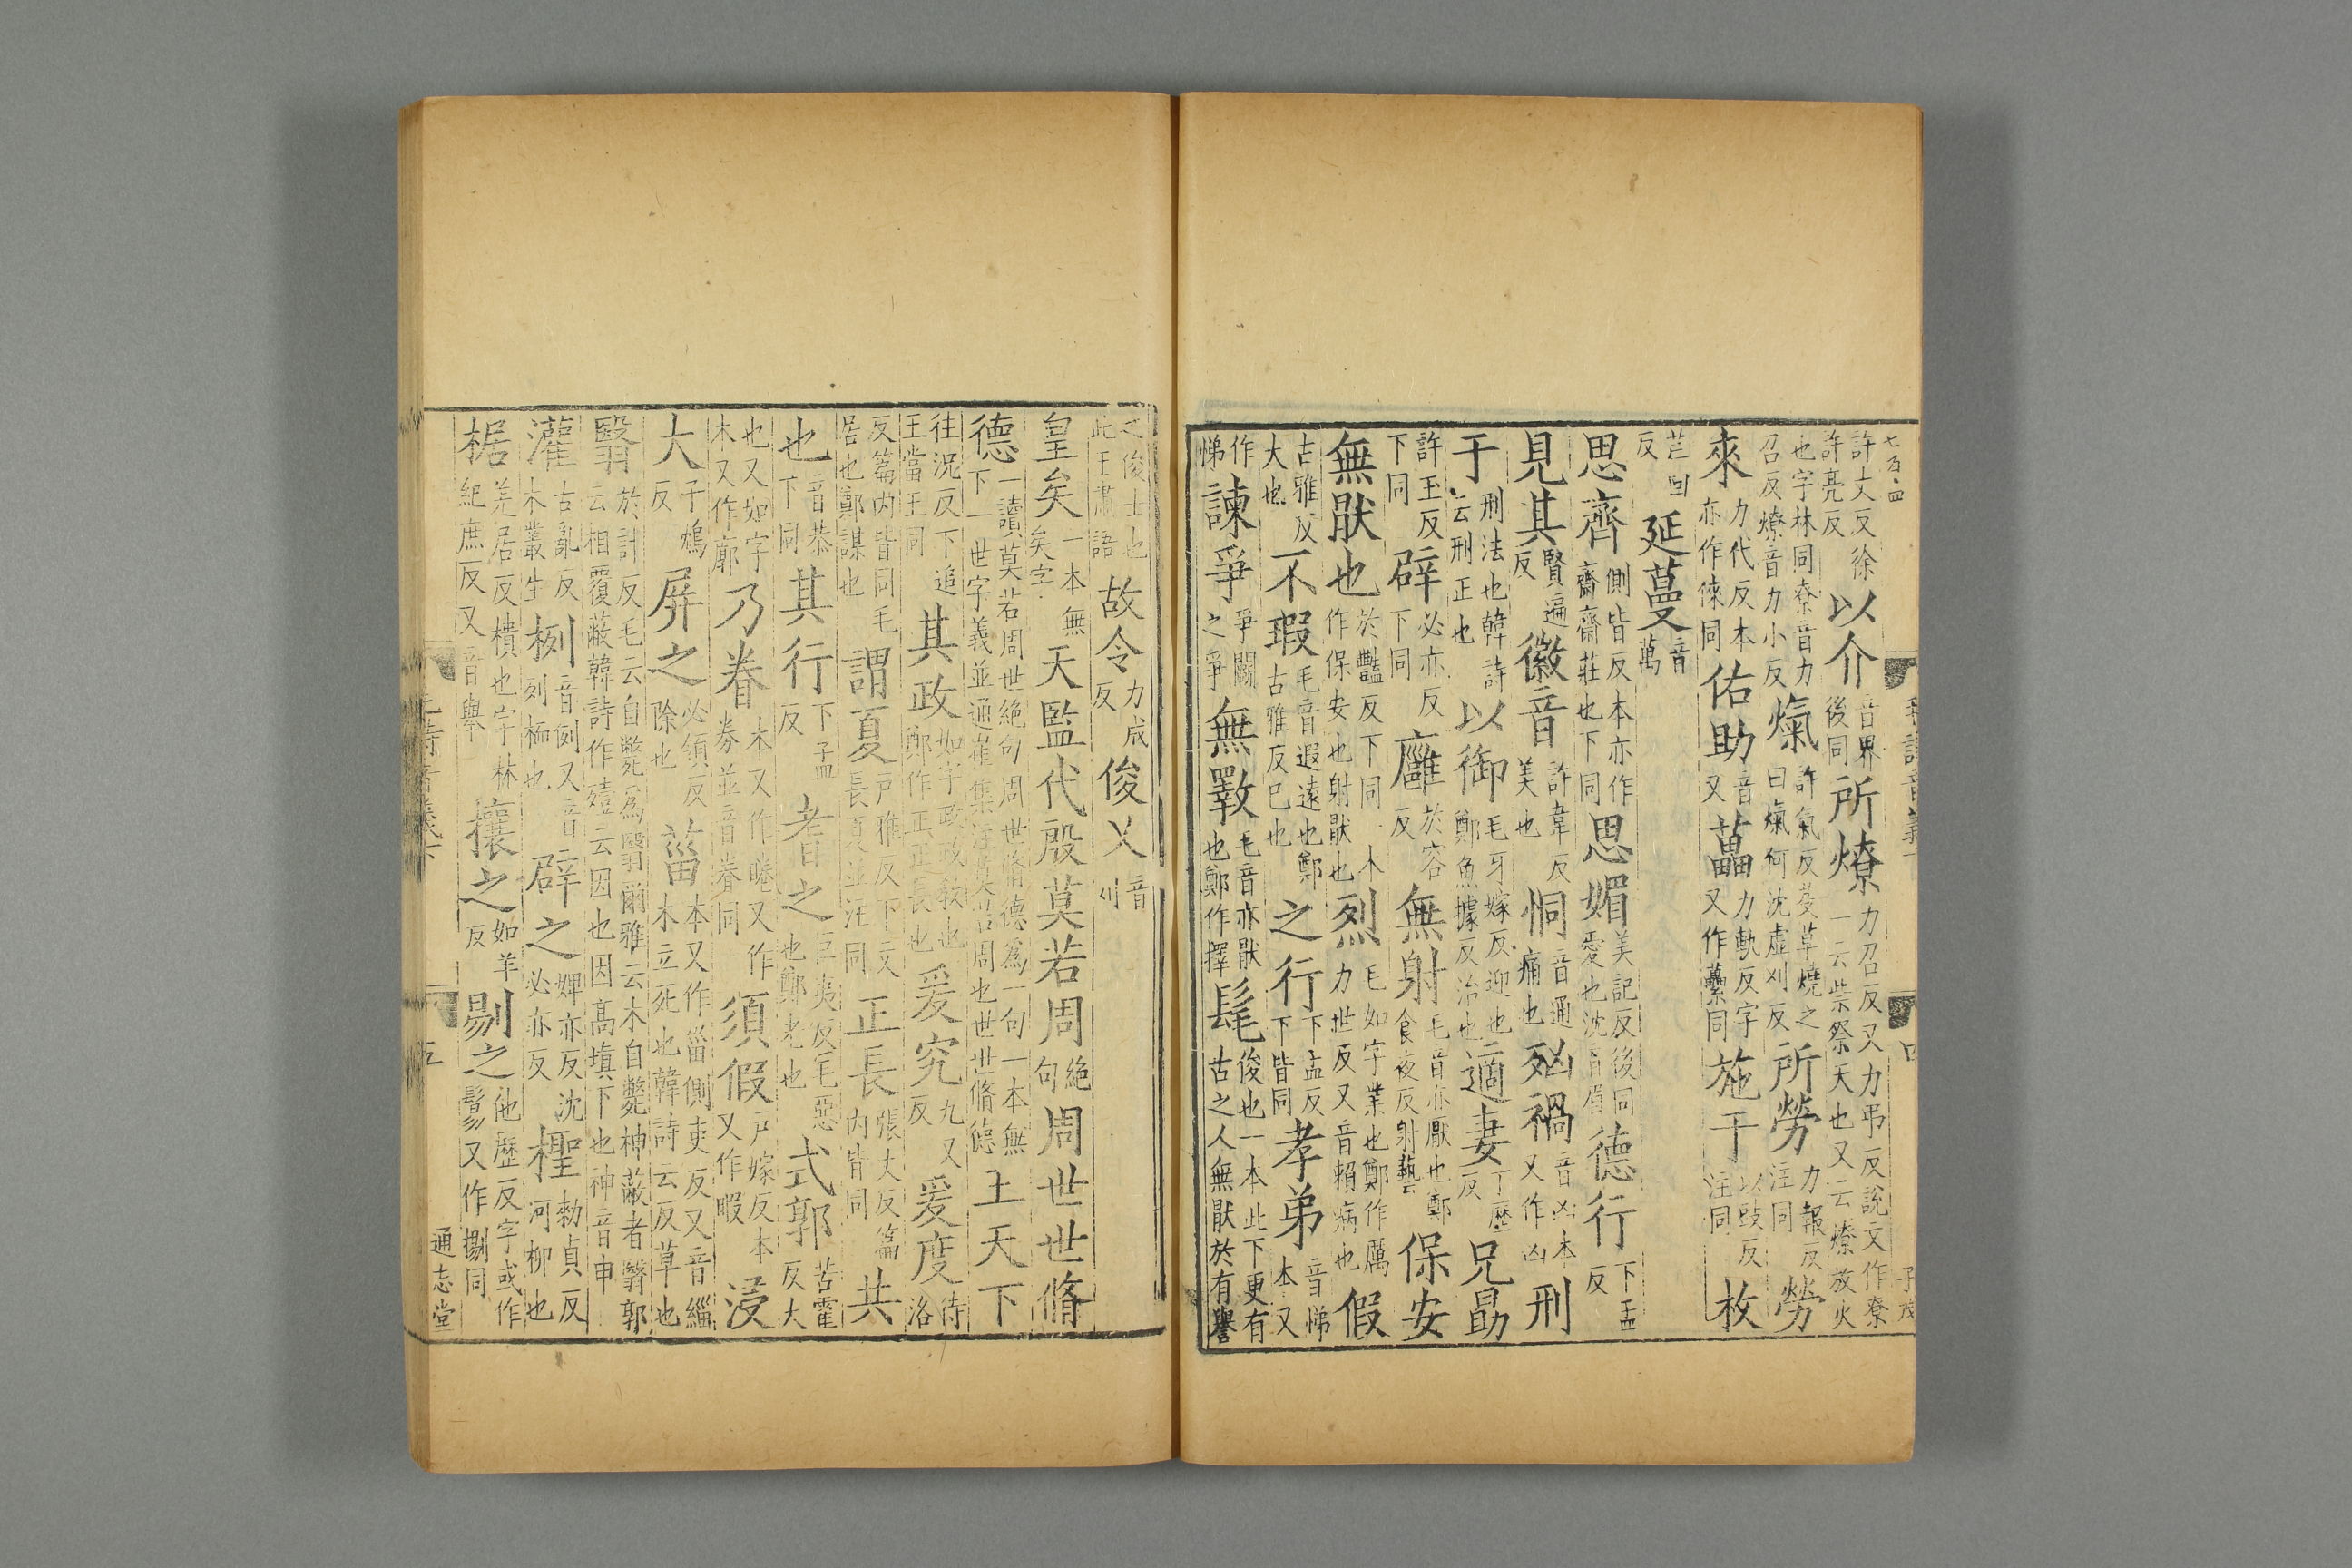 七百四
許丈反徐許亮反以介音界後同所燎力召反又力弔反說文作尞一云祡祭天也又云燎放火
也字林同尞音力召反燎音力小反熂許氣反芟草燒之曰熂何沈虛刈反所勞力報反注同勞
來力代反本亦作徠同佑助音又藟力軌反字又作虆同施于以豉反注同枚
芒回反延蔓音萬
思齊側皆反本亦作齋齋莊也下同思媚美記反後同愛也沈音眉德行下孟反
見其賢遍反徽音許韋反美也恫音通痛也殈禍音凶本又作凶刑
于刑法也韓詩云刑正也以御毛牙嫁反迎也鄭魚據反治也適妻丁歷反兄勗
許玉反下同辟必亦反下同廱於容反無射毛音亦厭也鄭食夜反射藝保安
無猒也於豔反下同本作保安也射猒也烈毛如字業也鄭作厲力世反又音賴病也假
古雅反大也不瑕毛音遐遠也鄭古雅反已也之行下孟反下皆同孝弟音悌本又
作悌諫爭爭鬬之爭無斁毛音亦猒也鄭作擇髦俊也一本此下更有古之人無猒於有譽
毛詩音義下
四
子茂
之俊士也此王肅語故令力成反俊乂音刈
皇矣一本無矣字天監代殷莫若周絕句周世世脩
德一讀莫若周世絕句周世脩德爲一句一本無下一世字義並通崔集注莫若周也世世脩德王天下
往況反下追王當王同其政如字政政教也鄭作正正長也爰究九又反爰度待洛
反篇內皆同毛居也鄭謀也謂夏戶雅反下文長夏並注同正長張丈反篇內皆同共
也音恭下同其行下孟反耆之巨夷反毛惡也鄭老也式郭苦霍反大
也又如字本又作廓乃眷本又作睠又作劵並音眷同須假戶嫁反本又作暇浸
大子鴆反屏之必領反除也菑本又作甾側吏反又音緇木立死也韓詩云反草也
翳於計反毛云自斃爲翳爾雅云木自斃神蔽者翳郭云相覆蔽韓詩作殪云因也因高塡下也神音申
灌古亂反木叢生栵音例又音列栭也辟之婢亦反沈必亦反檉勑貞反河柳也
椐羌居反樻也字林紀庶反又音舉攘之如羊反剔之他歷反字或作鬄又作捌同
毛詩音義下
五
通志堂